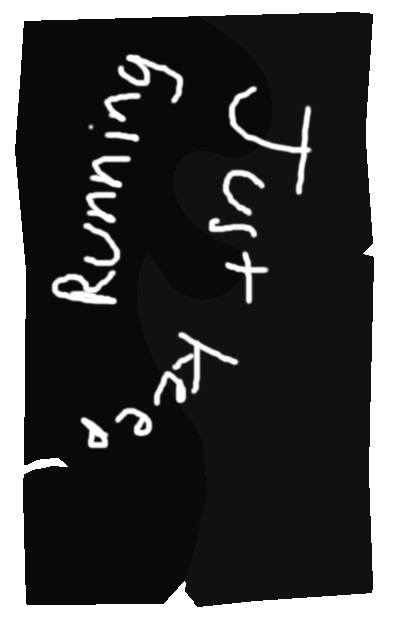 Just
Keep
Running